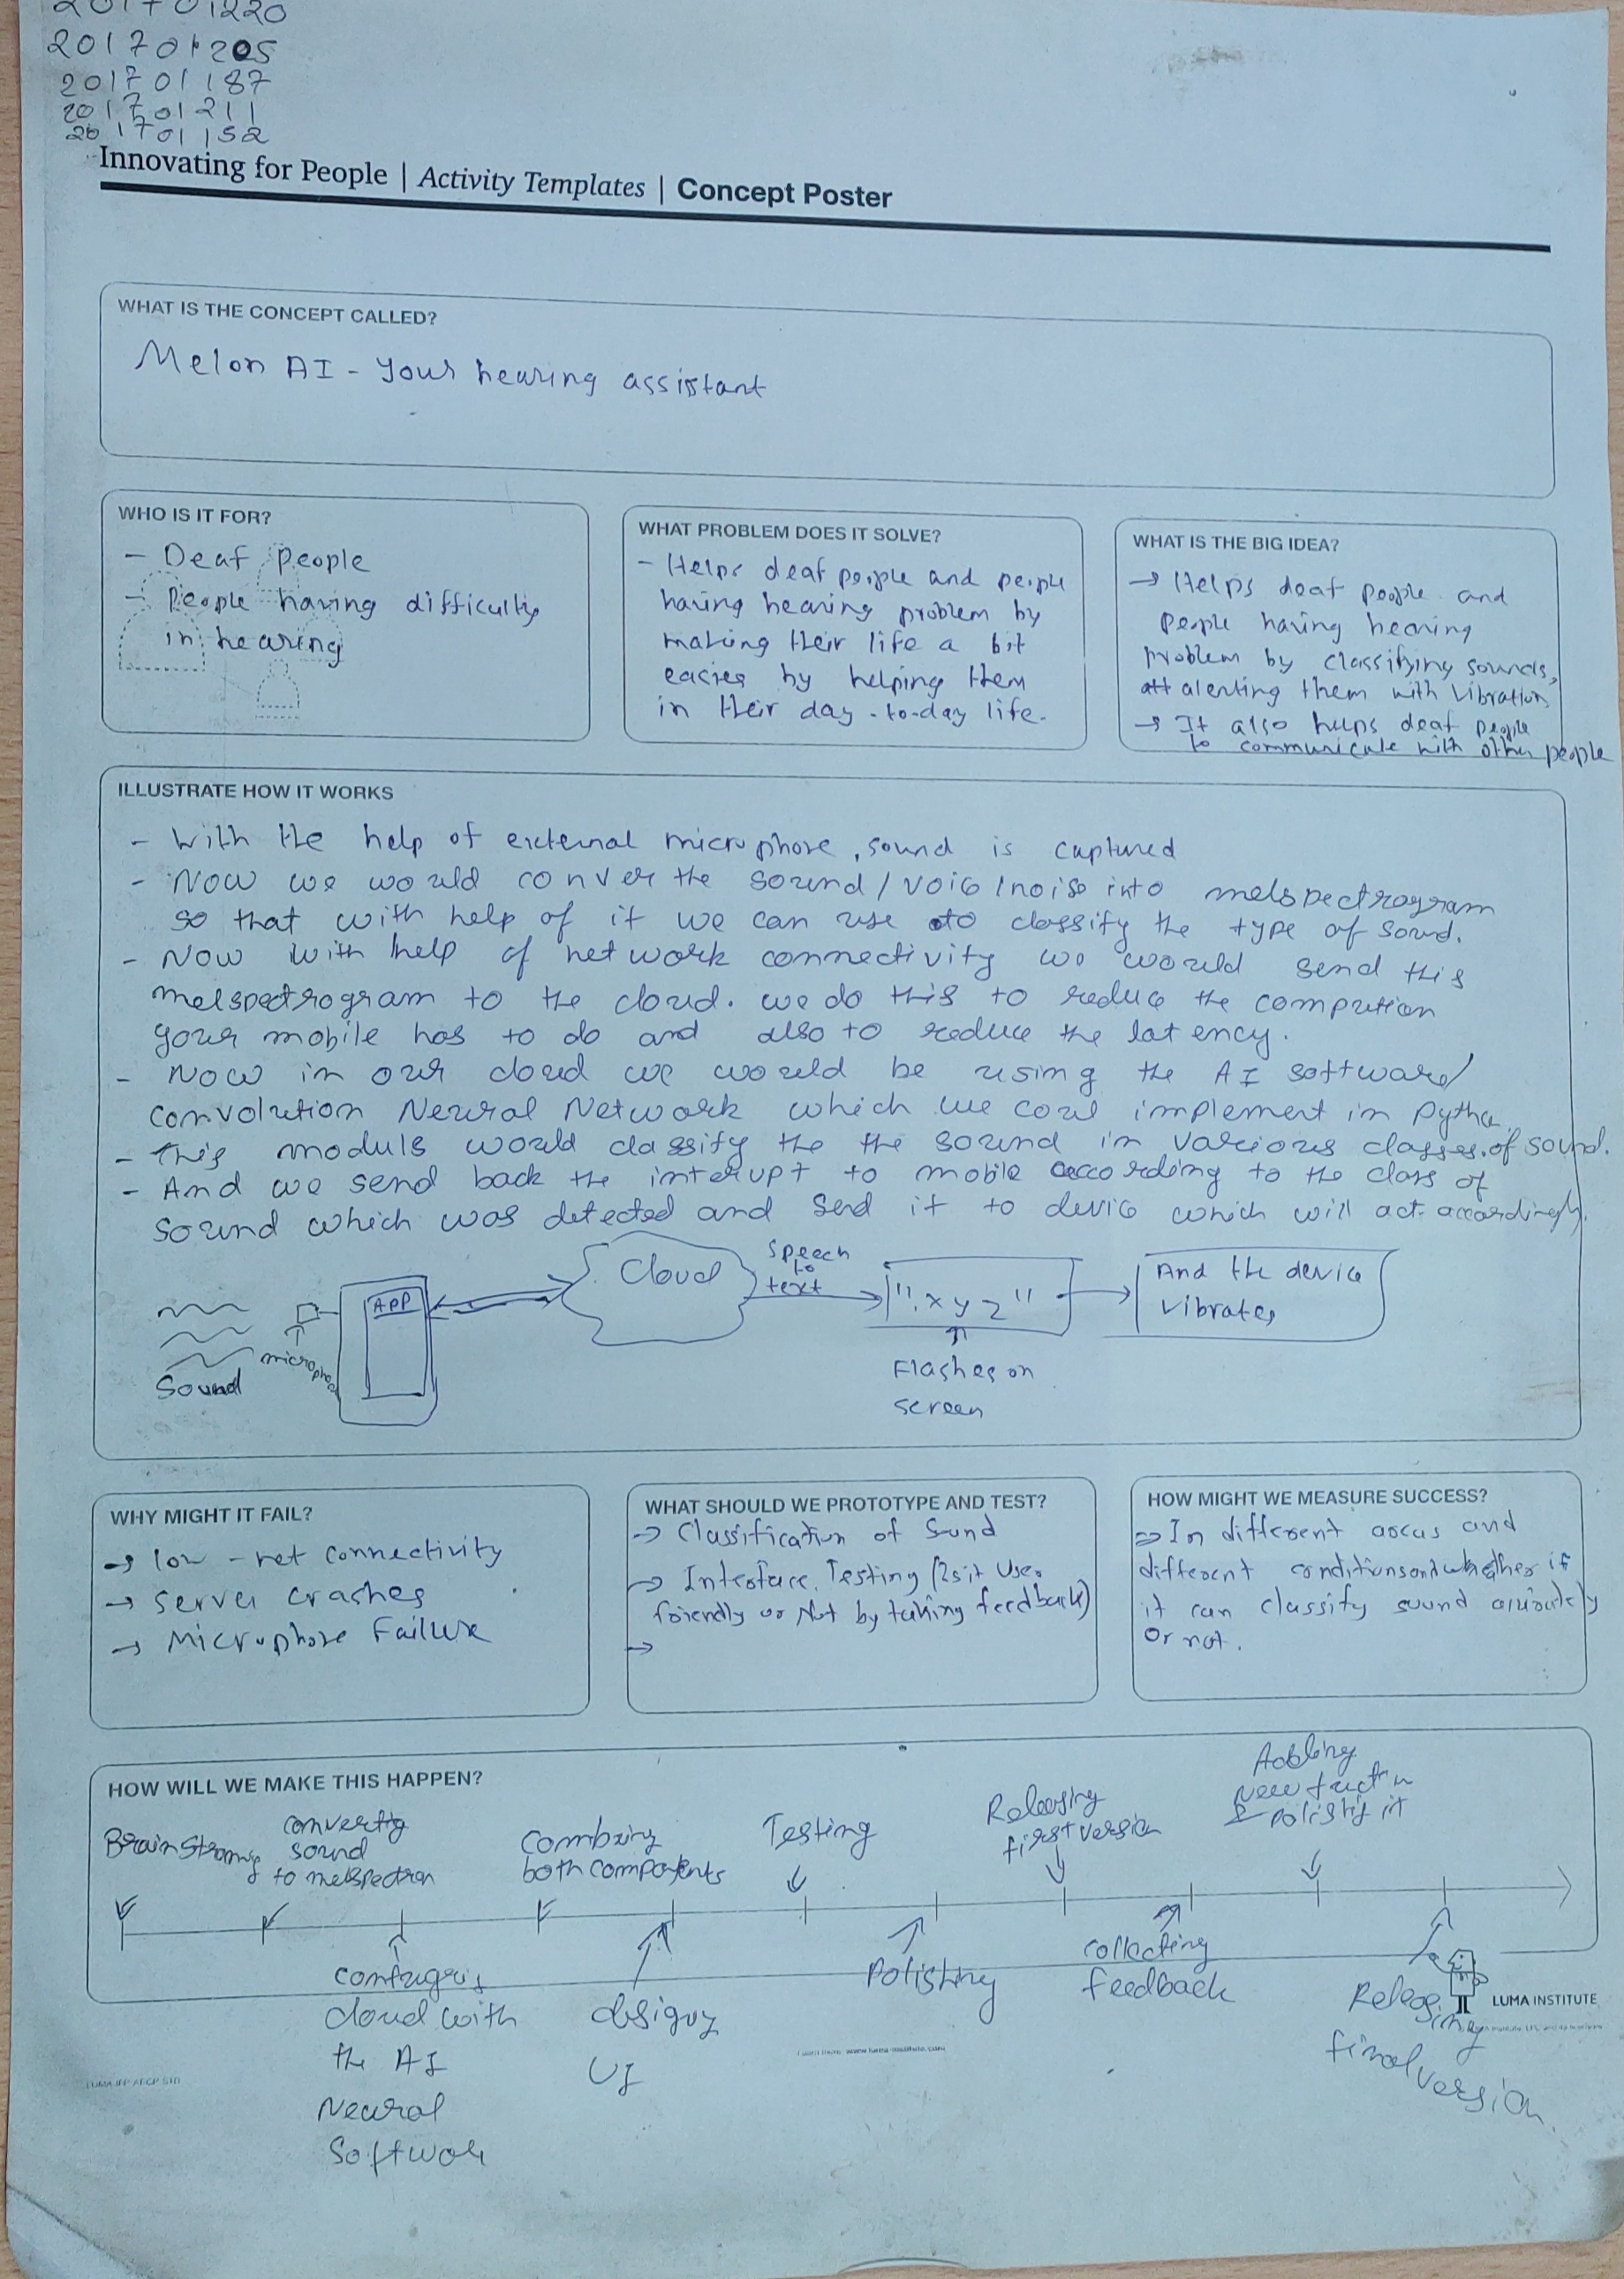 201701220
201701205
201701187
201701211
201701152
Innovating for People | Activity Templates | Concept Poster
WHAT IS THE CONCEPT CALLED?
Melon AI - Your hearing assistant
WHO IS IT FOR?
- Deaf people
- People having difficulty
in hearing
WHAT PROBLEM DOES IT SOLVE?
- Helps deaf people and people
having hearing problem by
making their life a bit
easier by helping them
in their day-to-day life.
WHAT IS THE BIG IDEA?
→ Helps deaf people and
people having hearing
problem by classifying sounds,
alerting them with vibration
→ It also helps deaf people
to communicate with other people
ILLUSTRATE HOW IT WORKS
- With the help of external microphone, sound is captured
- Now we would conver the sound/voic/noise into melspectrogram
so that with help of it we can use to classify the type of sound.
- Now with help of network connectivity we would send this
melspectrogram to the cloud. we do this to reduce the compution
your mobile has to do and also to reduce the latency.
- Now in our cloud we would be using the AI software/
convolution Neural Network which we coul implement in Pytho
- This module would classify the the sound in various classes of sound.
- And we send back the interupt to mobile according to the class of
sound which was detected and send it to device which will act accordingly.
Sound
microphone
APP
Cloud
Speech
to
text
"xyz"
Flashes on
screen
And the device
vibrates
WHY MIGHT IT FAIL?
→ low-net connectivity
→ server crashes
→ Microphone Failure
WHAT SHOULD WE PROTOTYPE AND TEST?
→ Classification of Sound
→ Interface Testing (Is it User
friendly or Not by taking feedback)
→
HOW MIGHT WE MEASURE SUCCESS?
⇒ In different areas and
different conditions and whether if
it can classify sound accurately
or not.
HOW WILL WE MAKE THIS HAPPEN?
Brainstroming
converting
sound
to melspectron
configuring
cloud with
the AI
Neural
Software
Combining
both components
desiging
UI
Testing
Polishing
Releasing
first version
collecting
feedback
Adding
new
& polishing it
Releasing
final version
LUMA INSTITUTE